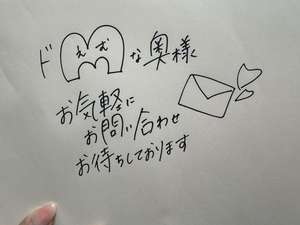 ドMえむな奥様
お気軽に
お問い合わせ
お待ちしております